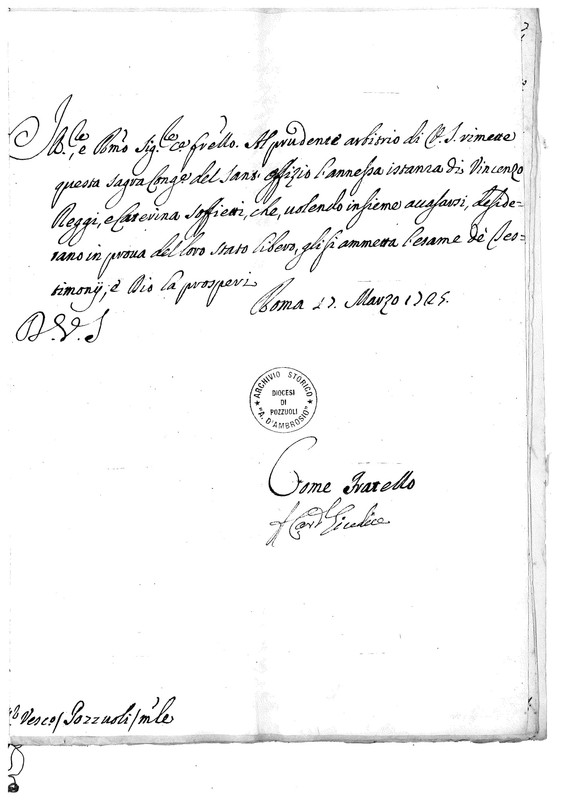 Ill.e, e R.mo Sig.re Come fr̃ello. Al prudente arbitrio di V. S. rimette
questa Sagra Cong.e del Sant' Offizio l'annessa istanza di Vincenzo
Reggi, e Caterina Soffietti, che, uolendo insieme accasarsi, deside=
rano in proua del loro stato libero, gli si ammetta l'esame de' Tes=
timonij; e Dio La prosperi
Roma 17. Marzo 1725.
D. V. S
ARCHIVIO STORICO
DIOCESI
DI
POZZUOLI
"A. D'AMBROSIO"
Come Fratello
Card. Giudice
Vesco/ Pozzuoli/